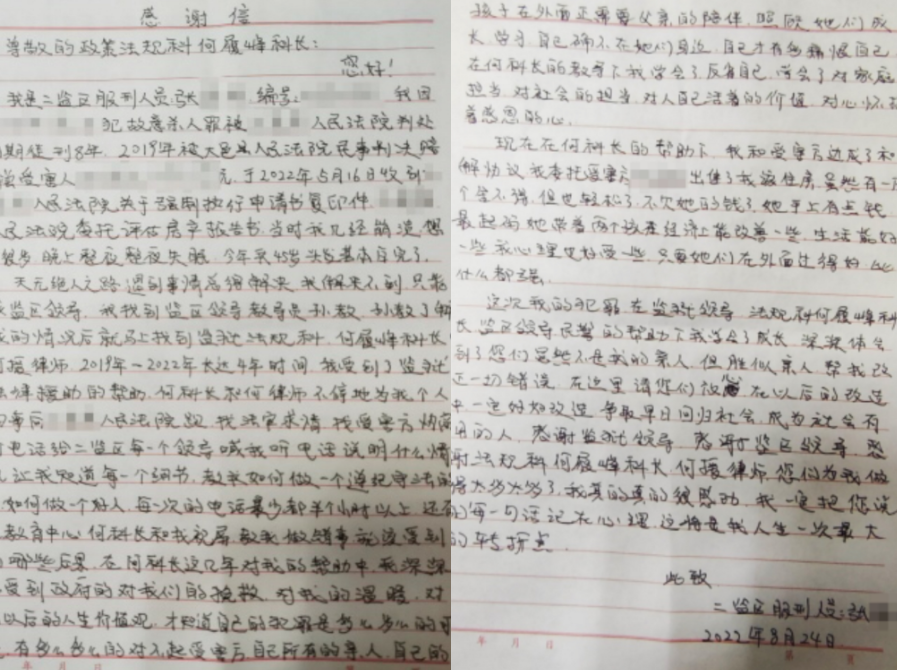 感谢信
尊敬的政策法规科何履峰科长：
您好！
我是二监区服刑人员张 编号 我因
犯故意杀人罪被 人民法院判处
期徒刑8年，2019年被大邑县人民法院民事判决赔
偿受害人 元，于2022年5月16日收到
人民法院关于强制执行申请书复印件
民法院委托评估房产报告书，当时我几经崩溃，想
晚上整夜整夜失眠，今年才45岁头发基本白完了。
天无绝人之路，遇到事情总得解决，我解决不到，只能
监区领导，我找到监区领导教导员孙教，孙教了解
我的情况后就马上找到监狱法规科，何履峰科长
何援律师，2019年—2022年长达4年时间，我受到了监狱
法律援助的帮助，何科长和何律师不停地为我个人
的事同 人民法院 我法官求情，找受害方协商
电话给二监区每一个领导喊我听电话说明什么情
让我知道每一个细节，教我如何做一个遵纪守法的
如何做一个好人，每一次的电话最少都半个小时以上，还有
教育中心何科长和我视屏教我做错事就该受到
哪些后果，在何科长这几年对我的帮助中，我深深
受到政府的对我们的挽救，对我的温暖，对
以后的人生价值观，才知道自己的犯罪是多么多么的可
有多么多么的对不起受害方自己所有的亲人，自己的
孩子在外面正需要父亲的陪伴，照顾她们成
长学习，自己确不在她们身边，自己才有多痛恨自己，
在何科长的教导下我学会了反省自己，学会了对家庭
担当，对社会的担当，对人自己活着的价值，对心怀
着感恩的心。
现在在何科长的帮助下，我和受害方达成了和
解协议，我委托受害方 出售了我这住房，虽然有一
个坐不落，但也轻松了，不欠她的钱了，她手上有点钱，
最起码她带着两个孩在经济上能改善一些，生活能好
一些，我心理也好受一些，只要她们在外面过得好，比
什么都强。
这次我的犯罪，在监狱领导，法规科何履峰科
长，监区领导民警的帮助下我学会了成长，深深体会
到了您们虽然不是我的亲人，但胜似亲人，帮我改
正一切错误，在这里请您们放心，在以后的改造
中一定好好改造，争取早日回归社会，成为社会有
用的人，感谢监狱领导，感谢监区领导，感
谢法规科何履峰科长，何援律师，您们为我做
得太多太多了，我真的真的很感动，我一定把您说
的每一句话记在心理，这将是我人生一次最大
的转拐点。
此致
二监区服刑人员：张
2022年8月24日
年 月 日
年 月 日 第 页